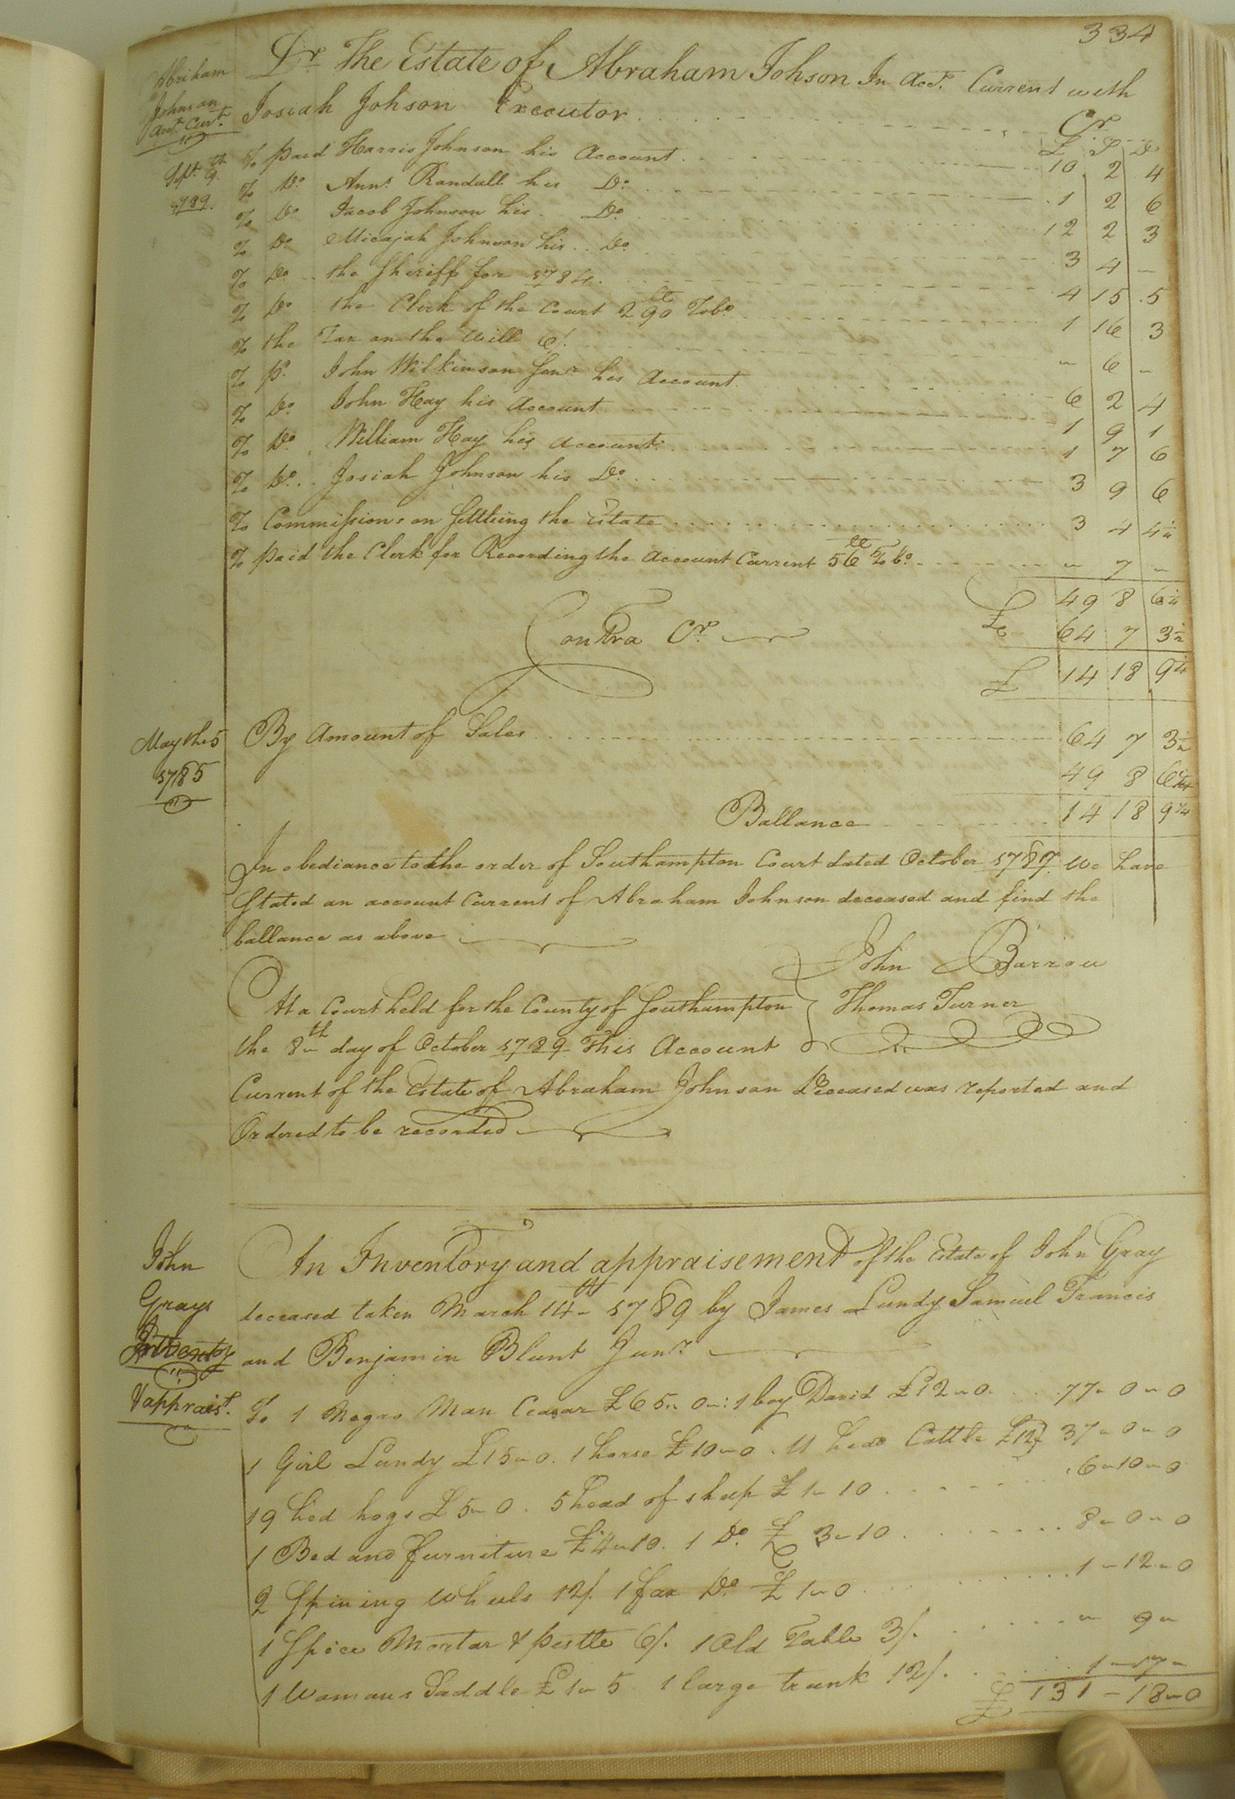 334
Abriham
Johnson
Acct Curt.
Dr The Estate of Abraham Johson In Acct. Current with
Josiah Johson Executor Cr
£ S D
Sept. 9th 1789. To paid Harris Johnson his Account 10 2 4
To Do Anns Randall his Do 1 2 6
To Do Jacob Johnson his Do 12 2 3
To Do Micajah Johnson his Do 3 4 –
To Do the Sheriff for 1784 4 15 5
To Do the Clerk of the Court 290 lb Tobo 1 16 3
To the Tax on the Will 6/. – 6 –
To pd John Wilkinson Senr his Account 6 2 4
To Do John Hay his Account 1 9 1
To Do William Hay his account 1 7 6
To Do Josiah Johnson his Do 3 9 6
To Commissions on Settleing the Estate 3 4 4½
To paid the Clerk for Recording the Account Current 56 lb Tobo – 7 –
49 8 6¼
Contra Cr £ 64 7 3½
£ 14 18 9¼
May the 5 1785 By Amount of Sales 64 7 3½
49 8 6¼
Ballance 14 18 9¼
In obediance to the order of Southampton Court dated October 1789 We have
Stated an account Current of Abraham Johnson deceased and find the
ballance as above
John Barrow
At a Court held for the County of Southampton } Thomas Turner
the 8th day of October 1789 This Account
Current of the Estate of Abraham Johnson Deceased was reported and
Ordered to be recorded
John
Grays
Inventory
& appraist.
An Inventory and appraisement of the Estate of John Gray
deceased taken March 14th 1789 by James Lundy Samuel Francis
and Benjamin Blunt Junr
To 1 Negro Man Ceasar £65 " 0 " : 1 boy David £12 " 0 77 " 0 " 0
1 Girl Lundy £15 " 0. 1 horse £10 " 0. 11 head Cattle £12 37 " 0 " 0
19 hed hogs £5 " 0. 5 head of sheep £1 " 10 6 " 10 " 0
1 Bed and furniture £4 " 10. 1 Do £3 " 10 8 " 0 " 0
2 Spining Wheels 12/. 1 flax Do £1 " 0 1 " 12 " 0
1 Spice Mortar & pestle 6/. 1 Old Table 3/. " 9 "
1 Womans Saddle £1 " 5 1 large trunk 12/. 1 " 17 "
£ 131 " 18 " 0